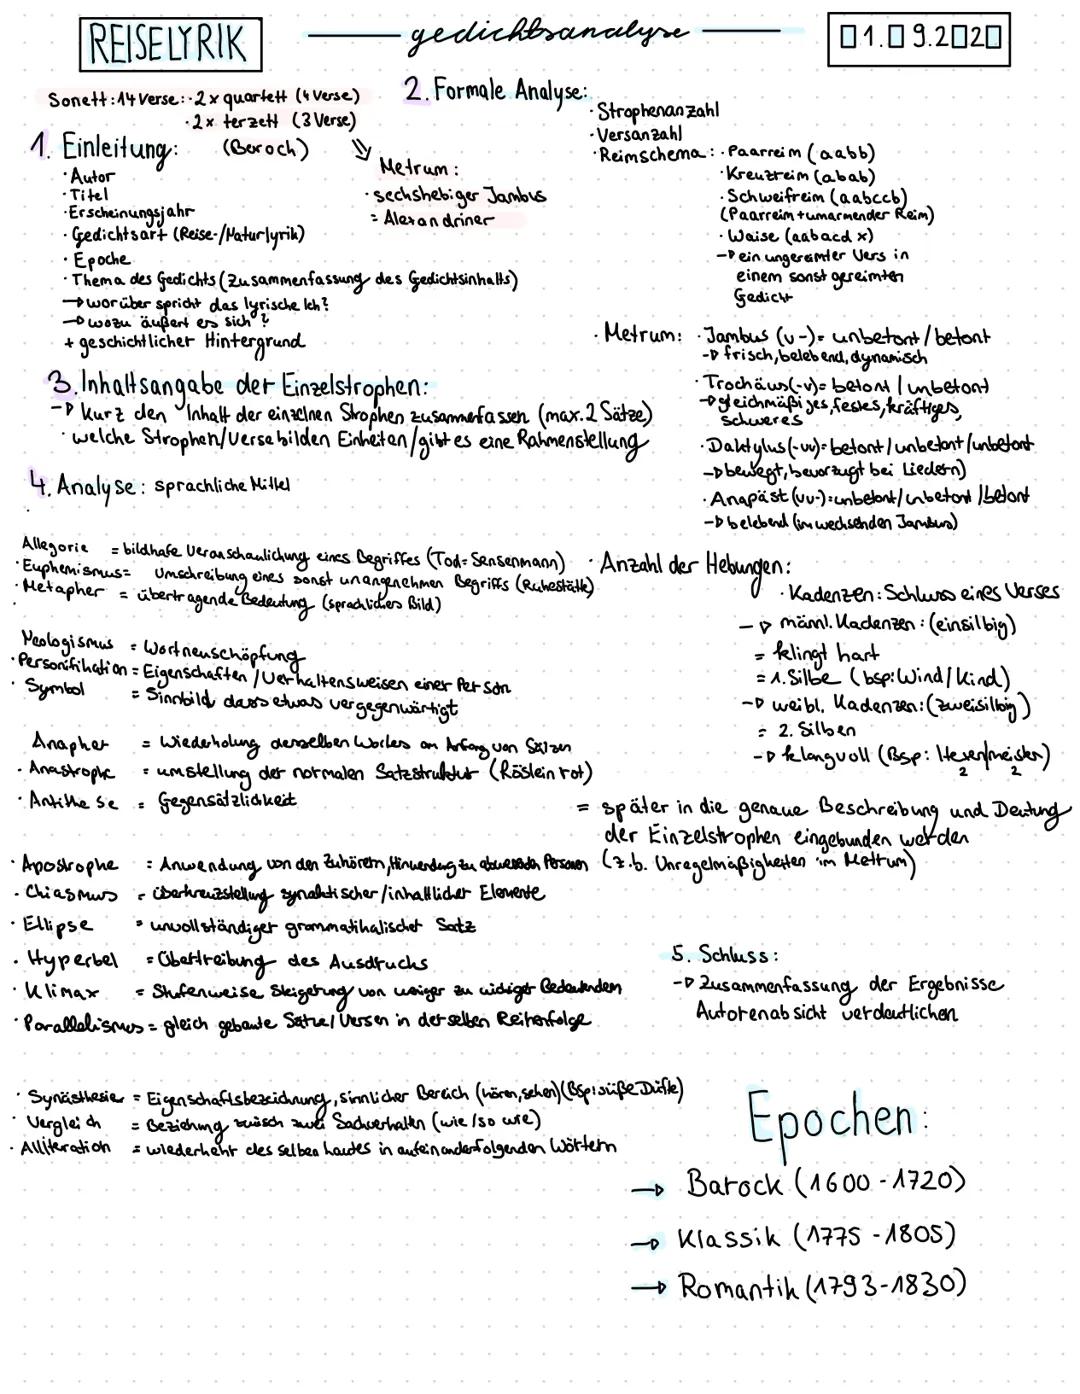 REISELYRIK
gedichtsanalyse
▯1.▯9.2▯2▯
Sonett: 14 Verse: · 2x quartett (4 Verse)
· 2x terzett (3 Verse)
(Barock)
Metrum:
· sechshebiger Jambus
= Alexandriner
1. Einleitung:
· Autor
· Titel
· Erscheinungsjahr
· Gedichtsart (Reise-/Naturlyrik)
· Epoche
· Thema des Gedichts (Zusammenfassung des Gedichtsinhalts)
→ worüber spricht das lyrische Ich?
→ wozu äußert es sich?
+ geschichtlicher Hintergrund
2. Formale Analyse:
· Strophenanzahl
· Versanzahl
· Reimschema: · Paarreim (aabb)
· Kreuzreim (abab)
· Schweifreim (aabccb)
(Paarreim + umarmender Reim)
· Waise (aabacd x)
→ ein ungereimter Vers in
einem sonst gereimten
Gedicht
· Metrum: · Jambus (u-) = unbetont / betont
→ frisch, belebend, dynamisch
· Trochäus (-u) = betont / unbetont
→ gleichmäßiges, festes, kräftiges,
schweres
· Daktylus (-uu) = betont / unbetont / unbetont
→ bewegt, bevorzugt bei Liedern)
· Anapäst (uu-) = unbetont / unbetont / betont
→ belebend (im wechselnden Jambus)
· Anzahl der Hebungen:
· Kadenzen: Schluss eines Verses
→ männl. Kadenzen: (einsilbig)
= klingt hart
= 1. Silbe (bsp: Wind / Kind)
→ weibl. Kadenzen: (zweisilbig)
= 2. Silben
→ klangvoll (Bsp: Hexen/meister)
2 2
= später in die genaue Beschreibung und Deutung
der Einzelstrophen eingebunden werden
(z.b. Unregelmäßigkeiten im Metrum)
3. Inhaltsangabe der Einzelstrophen:
→ kurz den Inhalt der einzelnen Strophen zusammenfassen (max. 2 Sätze)
· welche Strophen/Verse bilden Einheiten / gibt es eine Rahmenstellung
4. Analyse: sprachliche Mittel
Allegorie = bildhafe Veranschaulichung eines Begriffes (Tod = Sensenmann)
· Euphemismus = Umschreibung eines sonst unangenehmen Begriffs (Ruhestätte)
· Metapher = übertragende Bedeutung (sprachliches Bild)
Neologismus = Wortneuschöpfung
· Personifikation = Eigenschaften / Verhaltensweisen einer Person
· Symbol = Sinnbild dass etwas vergegenwärtigt
Anapher = Wiederholung desselben Wortes am Anfang von Sätzen
· Anastrophe = umstellung der normalen Satzstruktur (Röslein rot)
· Antithese = Gegensätzlichkeit
· Apostrophe = Anwendung von den Zuhörern, Hinwendung zu abwesenden Personen
· Chiasmus = überkreuzstellung synaktischer / inhaltlicher Elemente
· Ellipse = unvollständiger grammatikalischer Satz
· Hyperbel = Übertreibung des Ausdrucks
· Klimax = Stufenweise Steigerung von weniger zu wichtiger Bedeutendem
· Parallelismus = gleich gebaute Sätze / Versen in derselben Reihenfolge
· Synästhesie = Eigenschaftsbezeichnung, sinnlicher Bereich (hören, sehen) (Bsp: süße Düfte)
· Vergleich = Beziehung zwisch zwei Sachverhalten (wie / so wie)
· Alliteration = wiederkehr des selben Lautes in aufeinanderfolgenden Wörtern
5. Schluss:
→ Zusammenfassung der Ergebnisse
Autorenabsicht verdeutlichen
Epochen:
→ Barock (1600 - 1720)
→ Klassik (1775 - 1805)
→ Romantik (1793 - 1830)